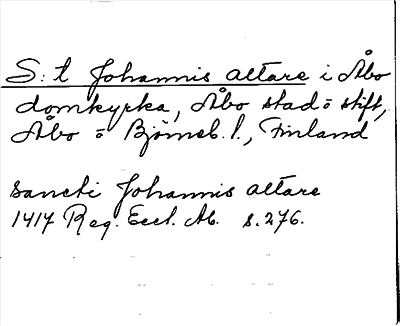 S:t Johannis altare i Åbo
domkyrka, Åbo stad o stift,
Åbo o Björneb. l., Finland
sancti Johannis altare
1417 Reg. Eccl. Ab. s. 276.